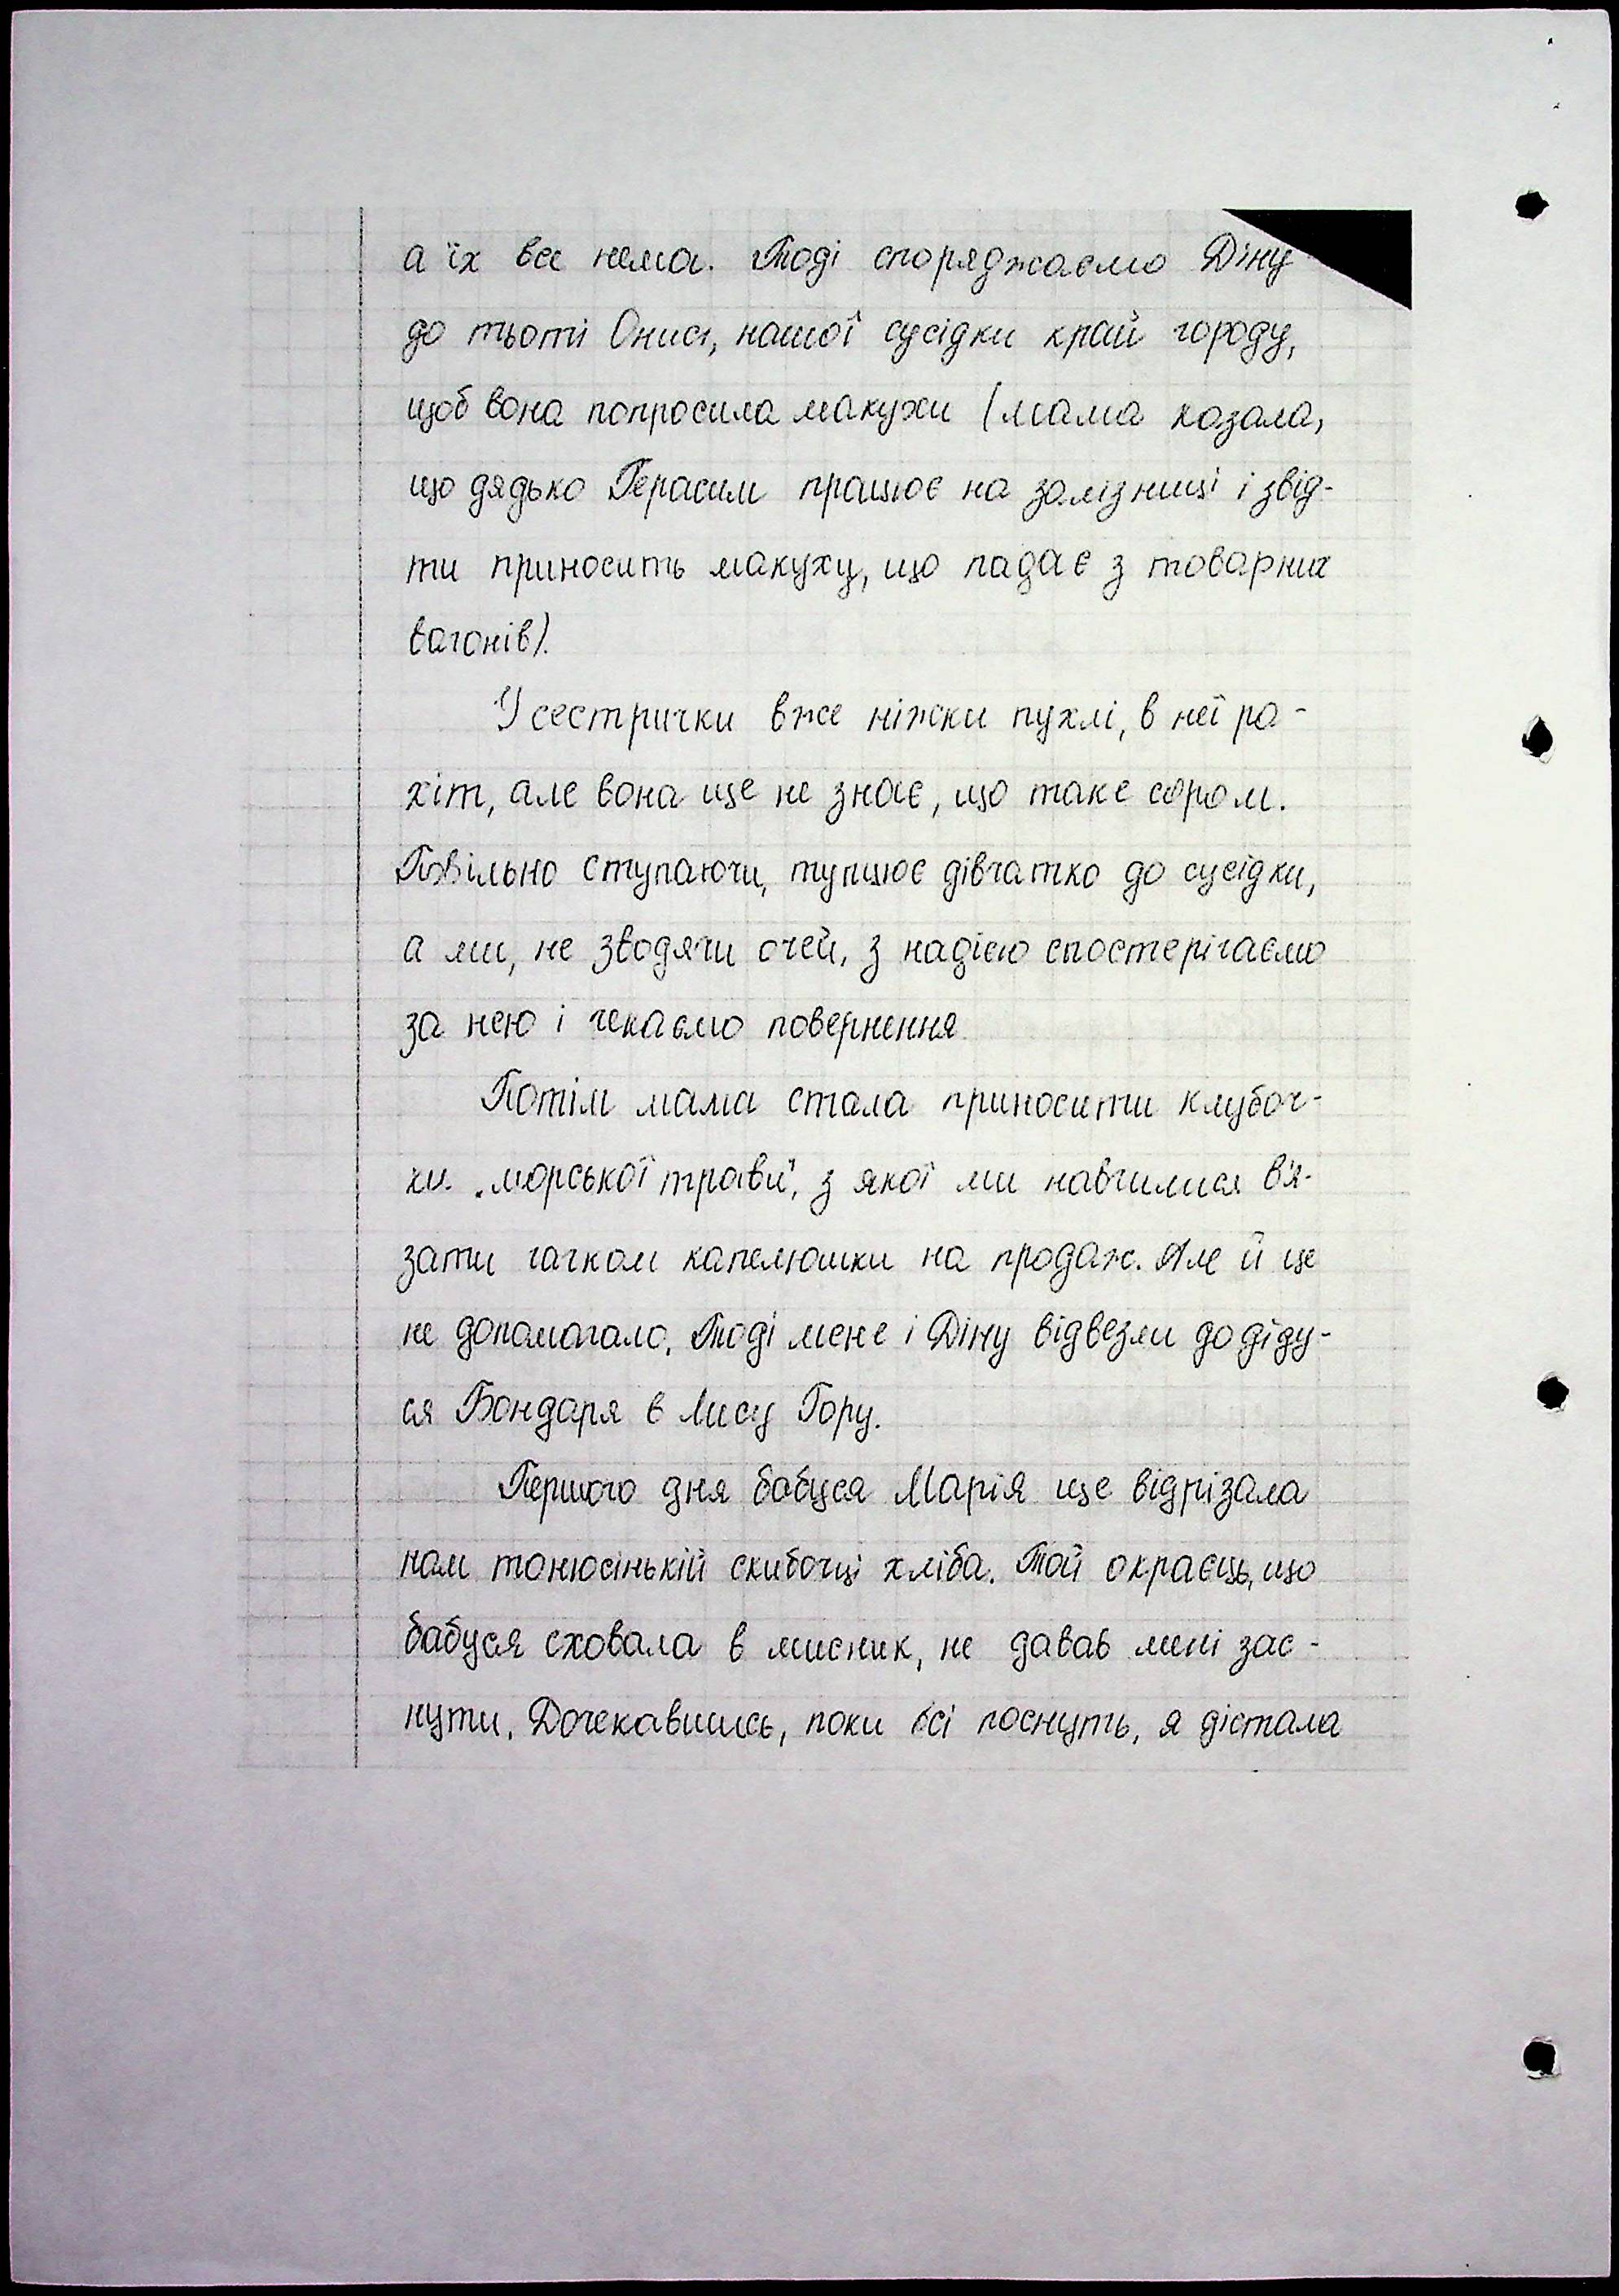 а їх все нема. Тоді споряджаємо Діну
до тьоті Онисі, нашої сусідки край городу,
щоб вона попросила макухи (мама казала,
що дядько Герасим працює на залізниці і звід-
ти приносить макуху, що падає з товарних
вагонів).
У сестрички вже ніжки пухлі, в неї ра-
хіт, але вона ще не знає, що таке сором.
Повільно ступаючи, тупцює дівчатко до сусідки,
а ми, не зводячи очей, з надією спостерігаємо
за нею і чекаємо повернення
Потім мама стала приносити клубоч-
ки „морської трави", з якої ми навчилися в'я-
зати гачком капелюшки на продаж. Але й це
не допомагало. Тоді мене і Діну відвезли до діду-
ся Бондаря в Лису Гору.
Першого дня бабуся Марія ще відрізала
нам тонюсінькій скибочці хліба. Той окраєць, що
бабуся сховала в мисник, не давав мені зас-
нути. Дочекавшись, поки всі поснуть, я дістала